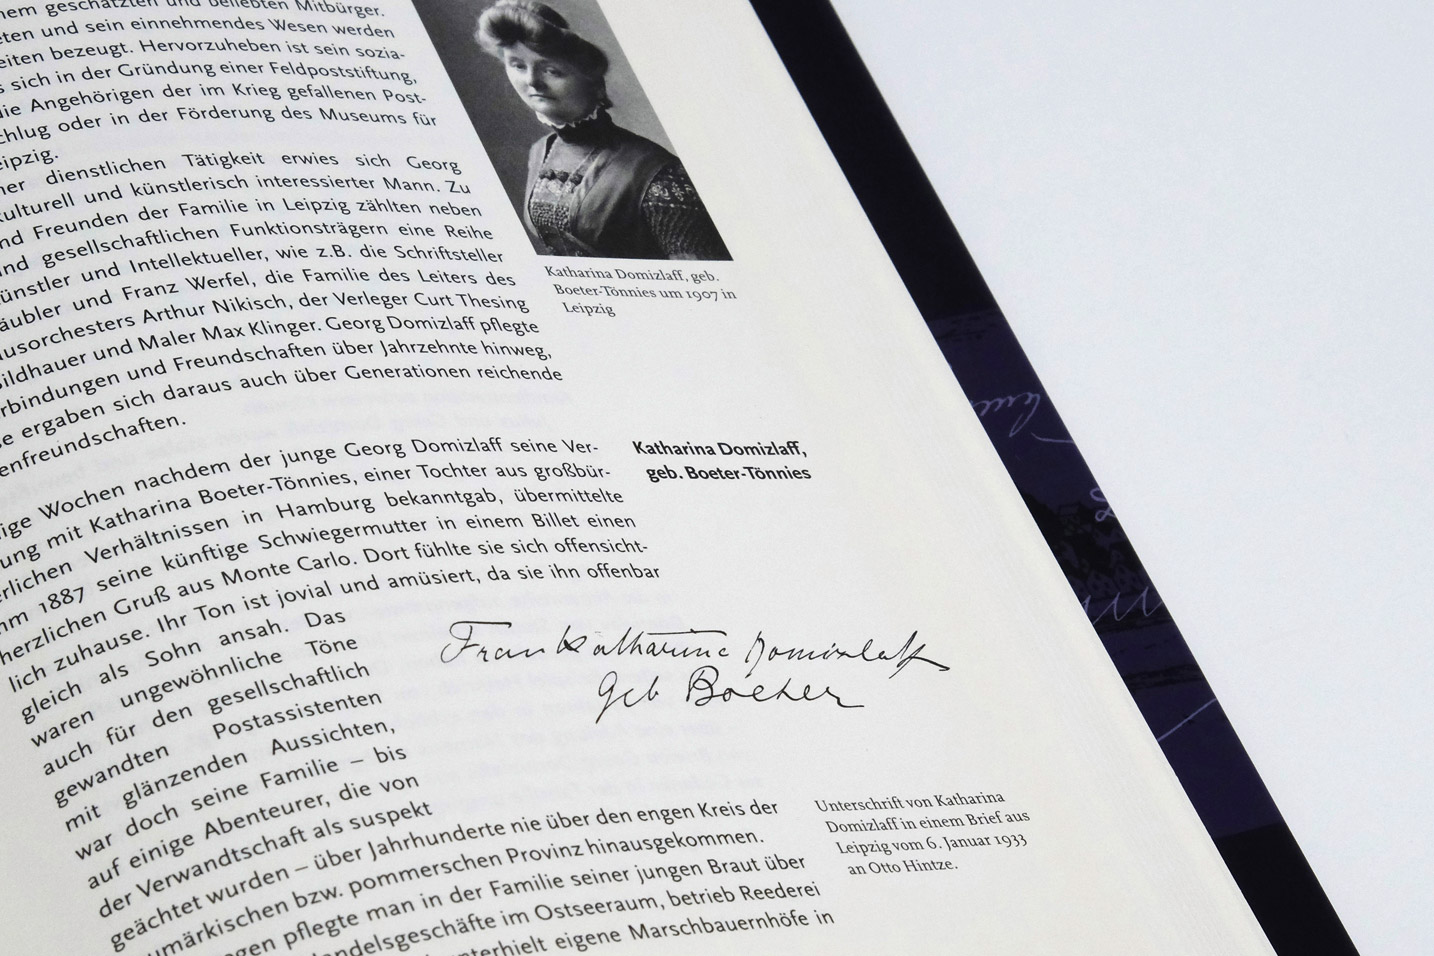 geschätzten und beliebten Mitbürger.
und sein einnehmendes Wesen werden
bezeugt. Hervorzuheben ist sein sozia-
sich in der Gründung einer Feldpoststiftung,
die Angehörigen der im Krieg gefallenen Post-
oder in der Förderung des Museums für
dienstlichen Tätigkeit erwies sich Georg
kulturell und künstlerisch interessierter Mann. Zu
Freunden der Familie in Leipzig zählten neben
gesellschaftlichen Funktionsträgern eine Reihe
und Intellektueller, wie z.B. die Schriftsteller
und Franz Werfel, die Familie des Leiters des
Arthur Nikisch, der Verleger Curt Thesing
und Maler Max Klinger. Georg Domizlaff pflegte
und Freundschaften über Jahrzehnte hinweg,
ergaben sich daraus auch über Generationen reichende
Katharina Domizlaff, geb.
Boeter-Tönnies um 1907 in
Leipzig
Katharina Domizlaff,
geb. Boeter-Tönnies
Wochen nachdem der junge Georg Domizlaff seine Ver-
mit Katharina Boeter-Tönnies, einer Tochter aus großbür-
Verhältnissen in Hamburg bekanntgab, übermittelte
1887 seine künftige Schwiegermutter in einem Billet einen
herzlichen Gruß aus Monte Carlo. Dort fühlte sie sich offensicht-
lich zuhause. Ihr Ton ist jovial und amüsiert, da sie ihn offenbar
gleich als Sohn ansah. Das
waren ungewöhnliche Töne
auch für den gesellschaftlich
gewandten Postassistenten
mit glänzenden Aussichten,
war doch seine Familie – bis
auf einige Abenteurer, die von
der Verwandtschaft als suspekt
geächtet wurden – über Jahrhunderte nie über den engen Kreis der
bzw. pommerschen Provinz hinausgekommen.
pflegte man in der Familie seiner jungen Braut über
im Ostseeraum, betrieb Reederei
eigene Marschbauernhöfe in
Frau Katharina Domizlaff
geb Boeter
Unterschrift von Katharina
Domizlaff in einem Brief aus
Leipzig vom 6. Januar 1933
an Otto Hintze.